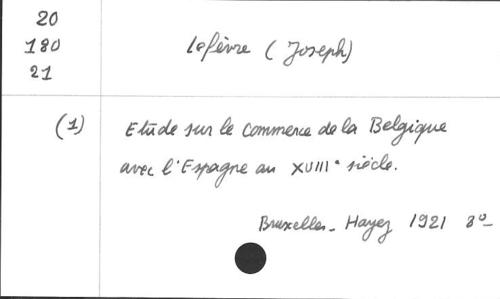 20
180
21
Lefèvre (Joseph)
(1)
Etude sur le commerce de la Belgique
avec l'Espagne au XVIII° siècle.
Bruxelles - Hayez 1921 8°